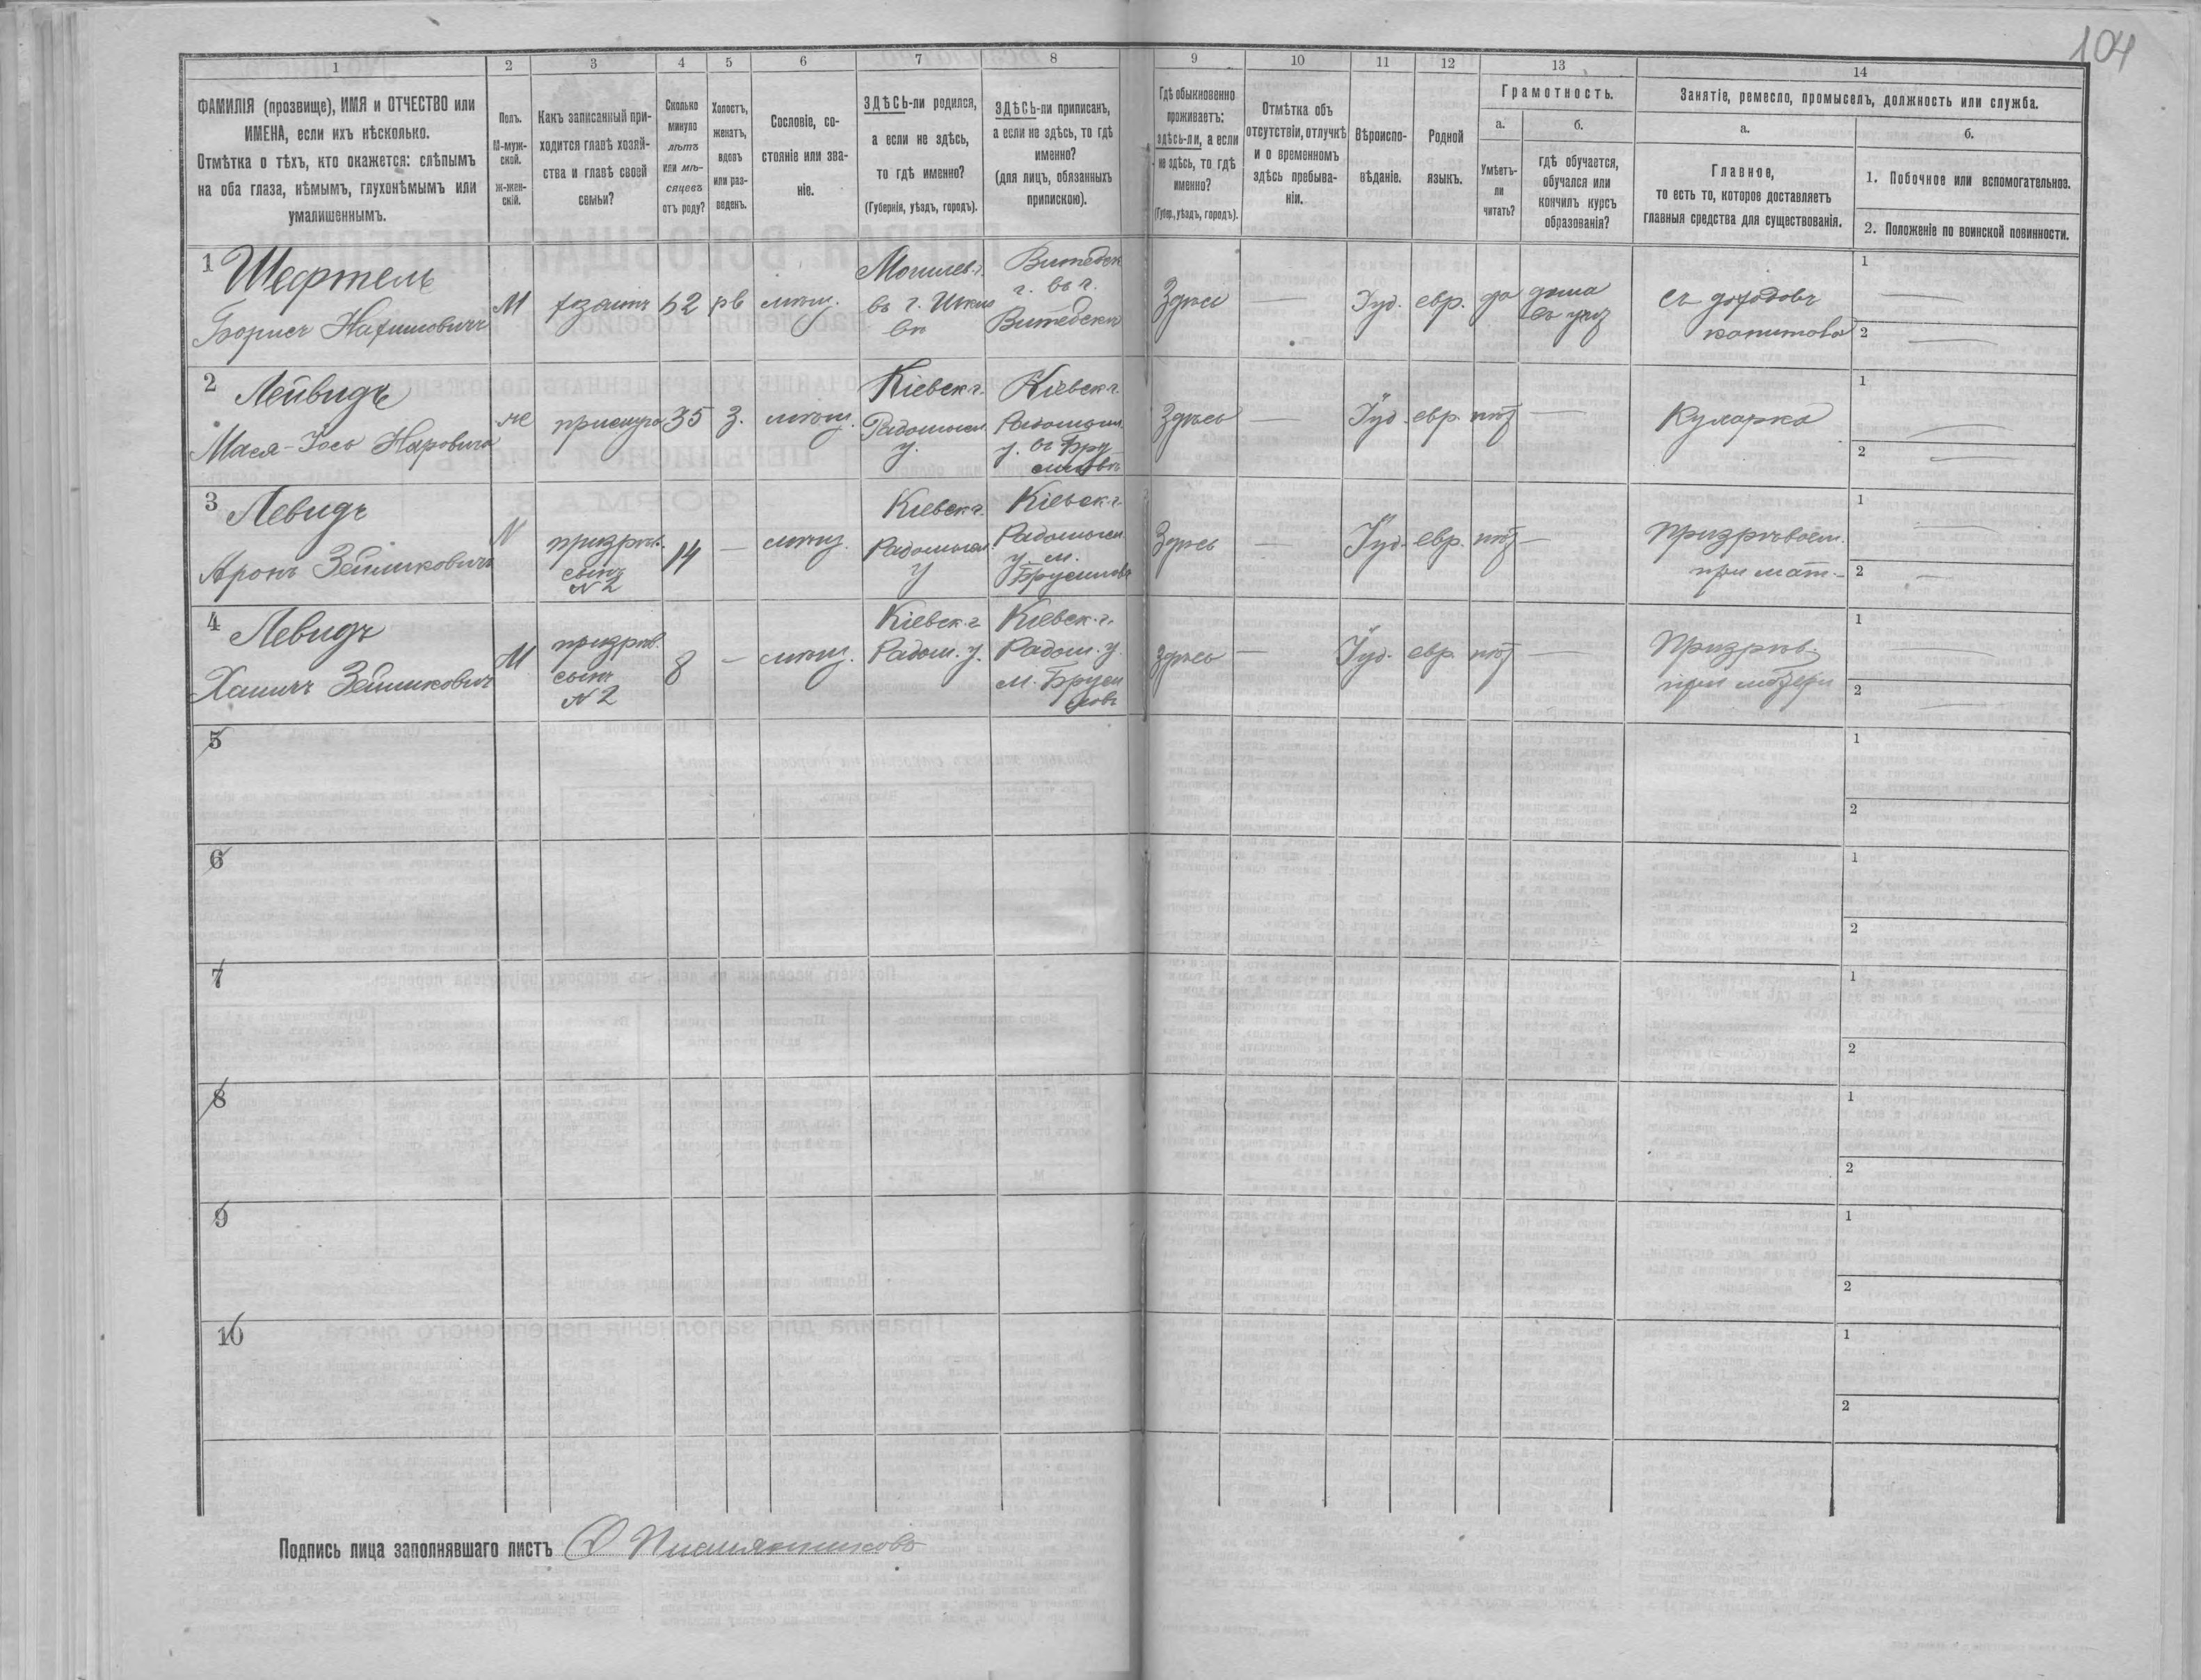 104
1
2
3
4
5
6
7
8
9
10
11
12
13
14
ФАМИЛІЯ (прозвище), ИМЯ и ОТЧЕСТВО или
ИМЕНА, если ихъ нѣсколько.
Отмѣтка о тѣхъ, кто окажется: слѣпымъ
на оба глаза, нѣмымъ, глухонѣмымъ или
умалишеннымъ.
Полъ.
М-муж-
ской.
ж-жен-
скій.
Какъ записанный при-
ходится главѣ хозяй-
ства и главѣ своей
семьи?
Сколько
минуло
лѣтъ
или мѣ-
сяцевъ
отъ роду?
Холостъ,
женатъ,
вдовъ
или раз-
веденъ.
Сословіе, со-
стояніе или зва-
ніе.
ЗДѢСЬ-ли родился,
а если не здѣсь,
то гдѣ именно?
(Губернія, уѣздъ, городъ).
ЗДѢСЬ-ли приписанъ,
а если не здѣсь, то гдѣ
именно?
(для лицъ, обязанныхъ
припискою).
Гдѣ обыкновенно
проживаетъ:
здѣсь-ли, а если
не здѣсь, то гдѣ
именно?
(Губер., уѣздъ, городъ).
Отмѣтка объ
отсутствіи, отлучкѣ
и о временномъ
здѣсь пребыва-
ніи.
Вѣроиспо-
вѣданіе.
Родной
языкъ.
Грамотность.
а.
Умѣетъ-
ли
читать?
б.
гдѣ обучается,
обучался или
кончилъ курсъ
образованія?
Занятіе, ремесло, промыселъ, должность или служба.
а.
Главное,
то есть то, которое доставляетъ
главныя средства для существованія.
б.
1. Побочное или вспомогательное.
2. Положеніе по воинской повинности.
1 Шефтель
Борисъ
М
хозяинъ
62
рв
мѣщ.
Могилев. г.
въ г.
Витебск
г. въ г.
Витебскѣ
Здѣсь
—
Іуд.
евр.
да
дома
съ доходовъ
капитала
1 —
2 —
2 Лейвидъ
Мася-
прислуга
35
з.
мѣщ.
Кіевск. г.
Радомысл.
у.
Кіевск. г.
Радомысл.
у. въ Бру-
силовѣ
Здѣсь
—
Іуд.
евр.
нѣт
—
Кухарка
1
2 —
3 Левидъ
Аронъ Зейликовичъ
призрѣв.
сынъ
№ 2
14
—
мѣщ.
Кіевск. г.
Радомысл.
у
Кіевск. г.
Радомысл.
у. м.
Брусиловъ
Здѣсь
—
Іуд.
евр.
нѣт
—
Призрѣваем.
при мат.
1 —
2 —
4 Левидъ
Зейликович
М
призрѣв.
сынъ
№ 2
8
—
мѣщ.
Кіевск. г.
Радом. у.
Кіевск. г.
Радом. у.
м. Бруси
ловъ
Здѣсь
—
Іуд.
евр.
нѣт
—
Призрѣв.
при матери
1 —
2 —
5
1
2
6
1
2
7
1
2
8
1
2
9
1
2
10
1
2
Подпись лица заполнявшаго листъ